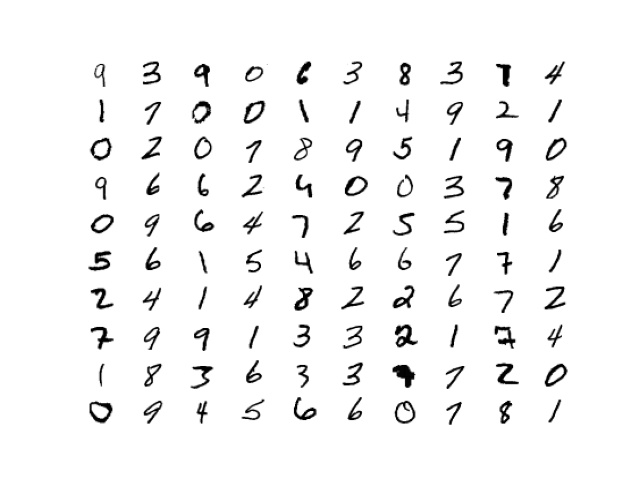 9 3 9 0 6 3 8 3 7 4
1 7 0 0 1 1 4 9 2 1
0 2 0 7 8 9 5 1 9 0
9 6 6 2 4 0 0 3 7 8
0 9 6 4 7 2 5 5 1 6
5 6 1 5 4 6 6 7 7 1
2 4 1 4 8 2 2 6 7 2
7 9 9 1 3 3 2 1 7 4
1 8 3 6 3 3 7 7 2 0
0 9 4 5 6 6 0 7 8 1